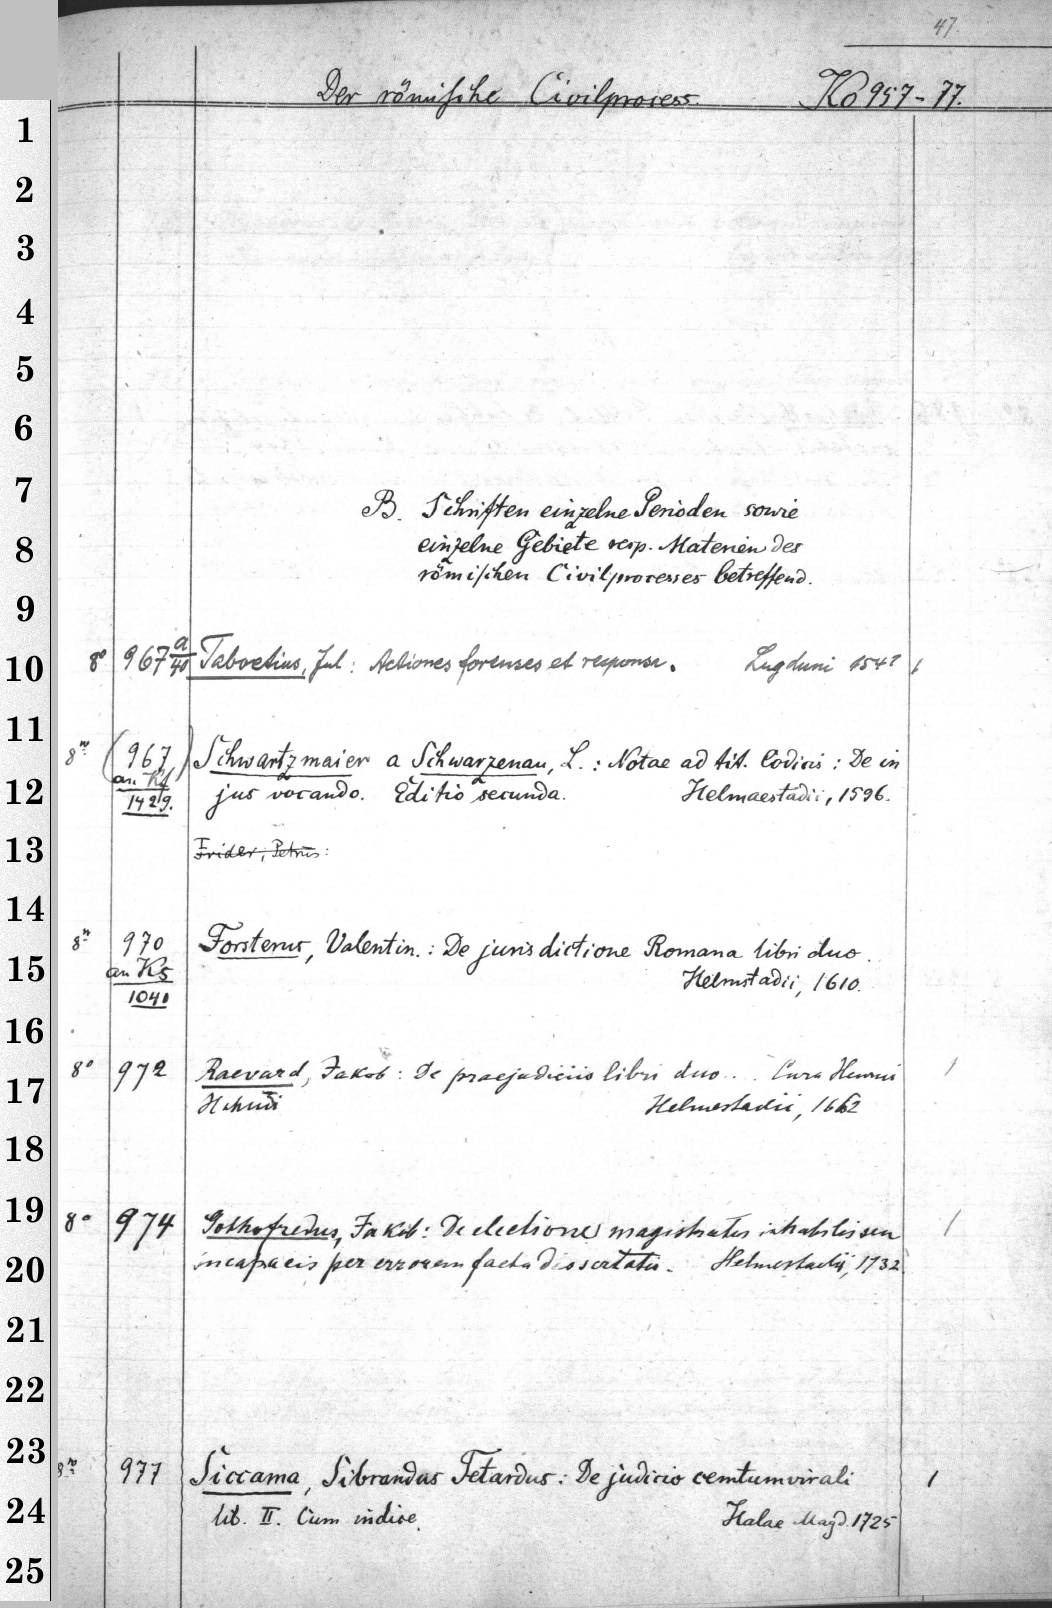 47.
Der römische Civilprocess. Ko 957-77.
1
2
3
4
5
6
7
B. Schriften einzelne Perioden sowie
8
einzelne Gebiete resp. Materien des
römischen Civilprocesses betreffend.
9
10
8° 967 a/40 Taboetius, Jul: Actiones forenses et responsa. Lugduni 154 1
11
8° (967) Schwartzmaier a Schwarzenau, L.: Notae ad tit. Codicis: De in
12
an Kf 1429. jus vocando. Editio secunda. Helmaestadii, 1596.
13
Frider, Petrus:
14
8° 970 Forsterus, Valentin.: De jurisdictione Romana libri duo.
15
an Ks 1040 Helmstadii, 1610.
16
8° 972 Raevard, Jakob: De praejudiciis libri duo... Cura Henrici 1
17
Hahnii Helmestadii, 1662
18
19
8° 974 Gothofredus, Jakob: De electione magistratus inhabilis seu 1
20
incapacis per errorem facta dissertatio. Helmestadii, 1732.
21
22
23
8° 977 Siccama, Sibrandus Tetardus: De judicio centumvirali 1
24
lib. II. Cum indice. Halae Magd. 1725
25